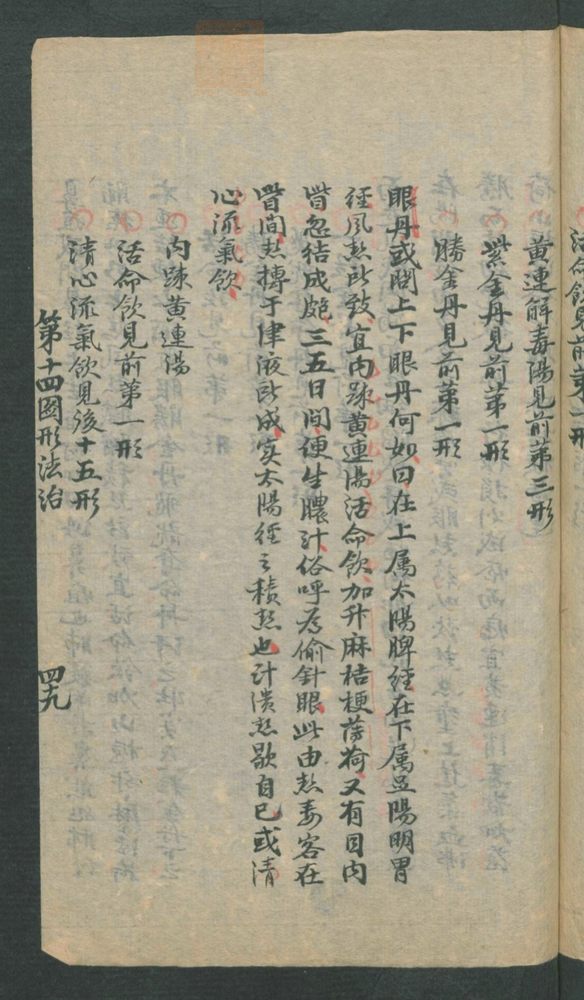 活命飲見前第一形
黃連解毒湯見前第三形
紫金丹見前第一形
勝金丹見前第一形
眼丹或問上下眼丹何如曰在上属太陽脾経在下属足陽明胃
経風熱所致宜内踈黃連湯活命飲加升麻桔梗薄荷又有目内
眥忽結成皰三五日間便生膿汁俗呼為偷針眼此由熱毒客在
眥間熱摶于津液所成实太陽経之積熱也汁潰熱歇自已或清
心流氣飲
内踈黃連湯
活命飲見前第一形
清心流氣飲見後十五形
第十四圖形法治
四十九